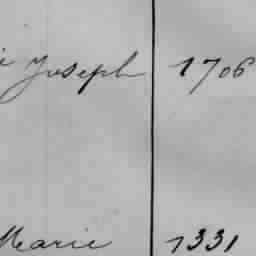 Joseph 1706
Marie 1331